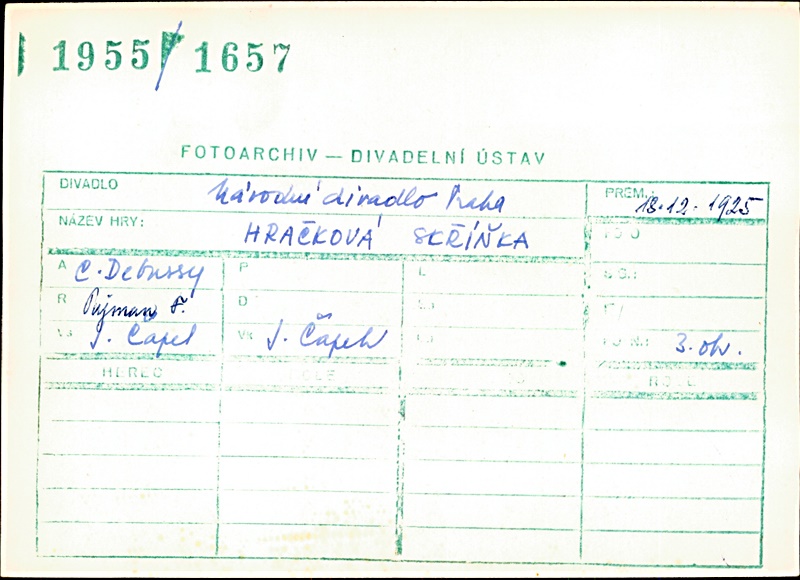 1955/1657
FOTOARCHIV — DIVADELNÍ ÚSTAV
DIVADLO Národní divadlo Praha PREM.: 18.12.1925
NÁZEV HRY: HRAČKOVÁ SKŘÍŇKA
A C. Debussy P
R Pujman F. D
J. Čapek VK J. Čapek 3. obr.
HEREC